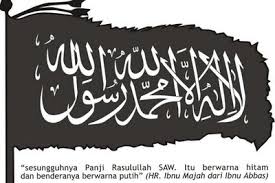 لا إله إلا الله محمد رسول الله
"sesungguhnya Panji Rasulullah SAW. Itu berwarna hitam
dan benderanya berwarna putih" (HR. Ibnu Majah dari Ibnu Abbas)